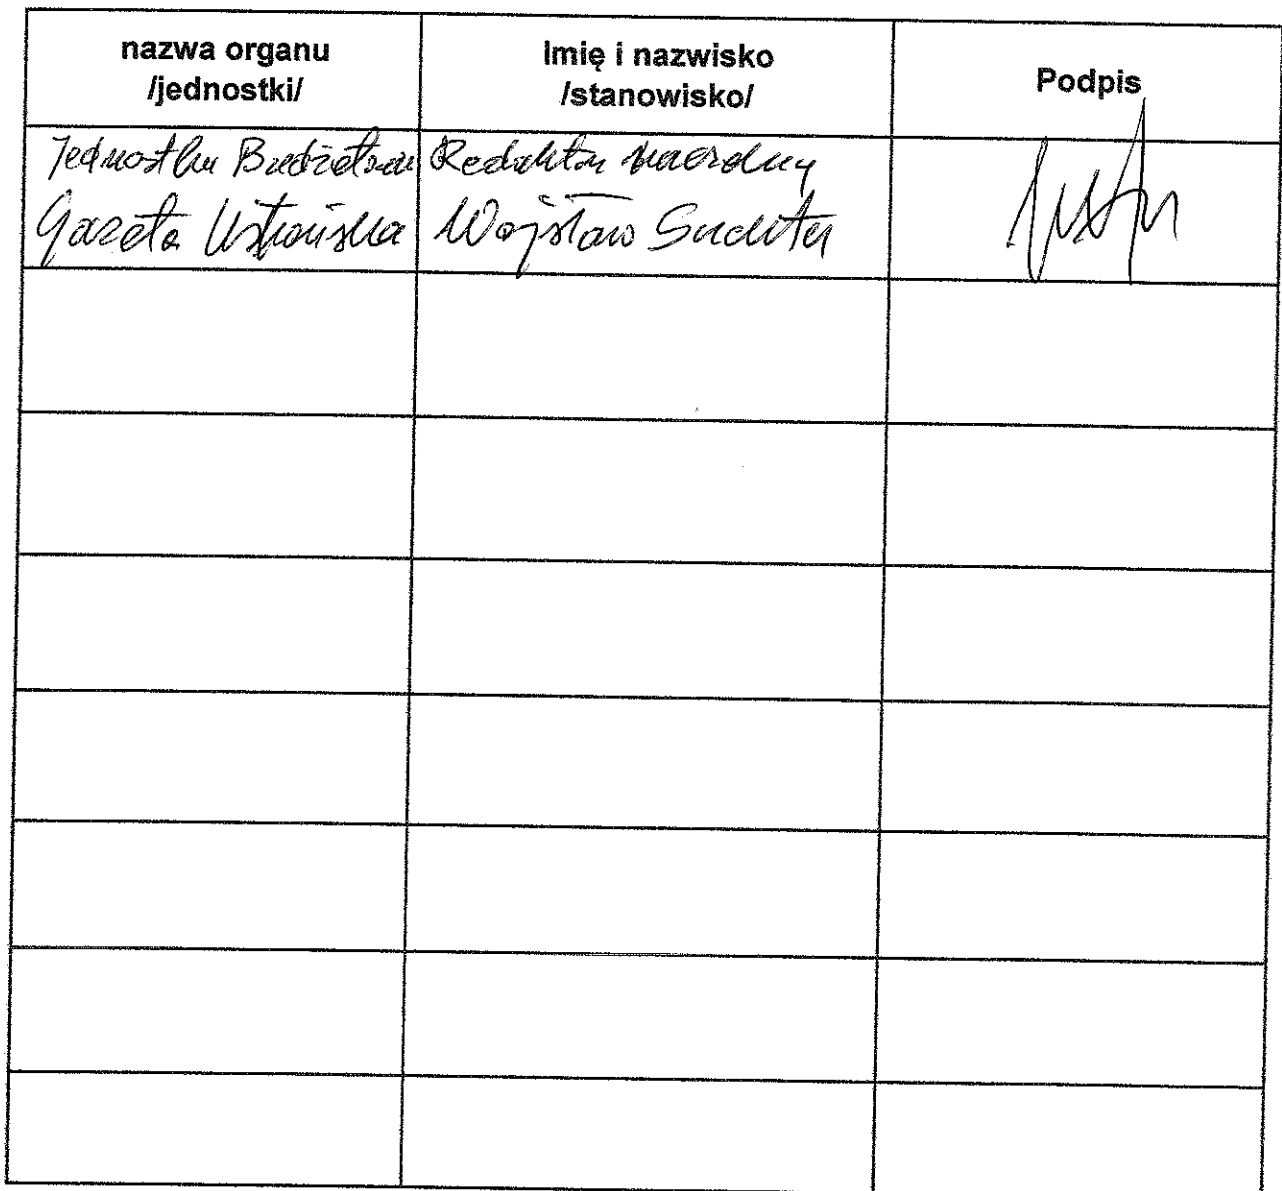 nazwa organu
/jednostki/
Imię i nazwisko
/stanowisko/
Podpis
Jednostka Budżetowa
Gazeta Ustrońska
Redaktor naczelny
Wojsław Suchta